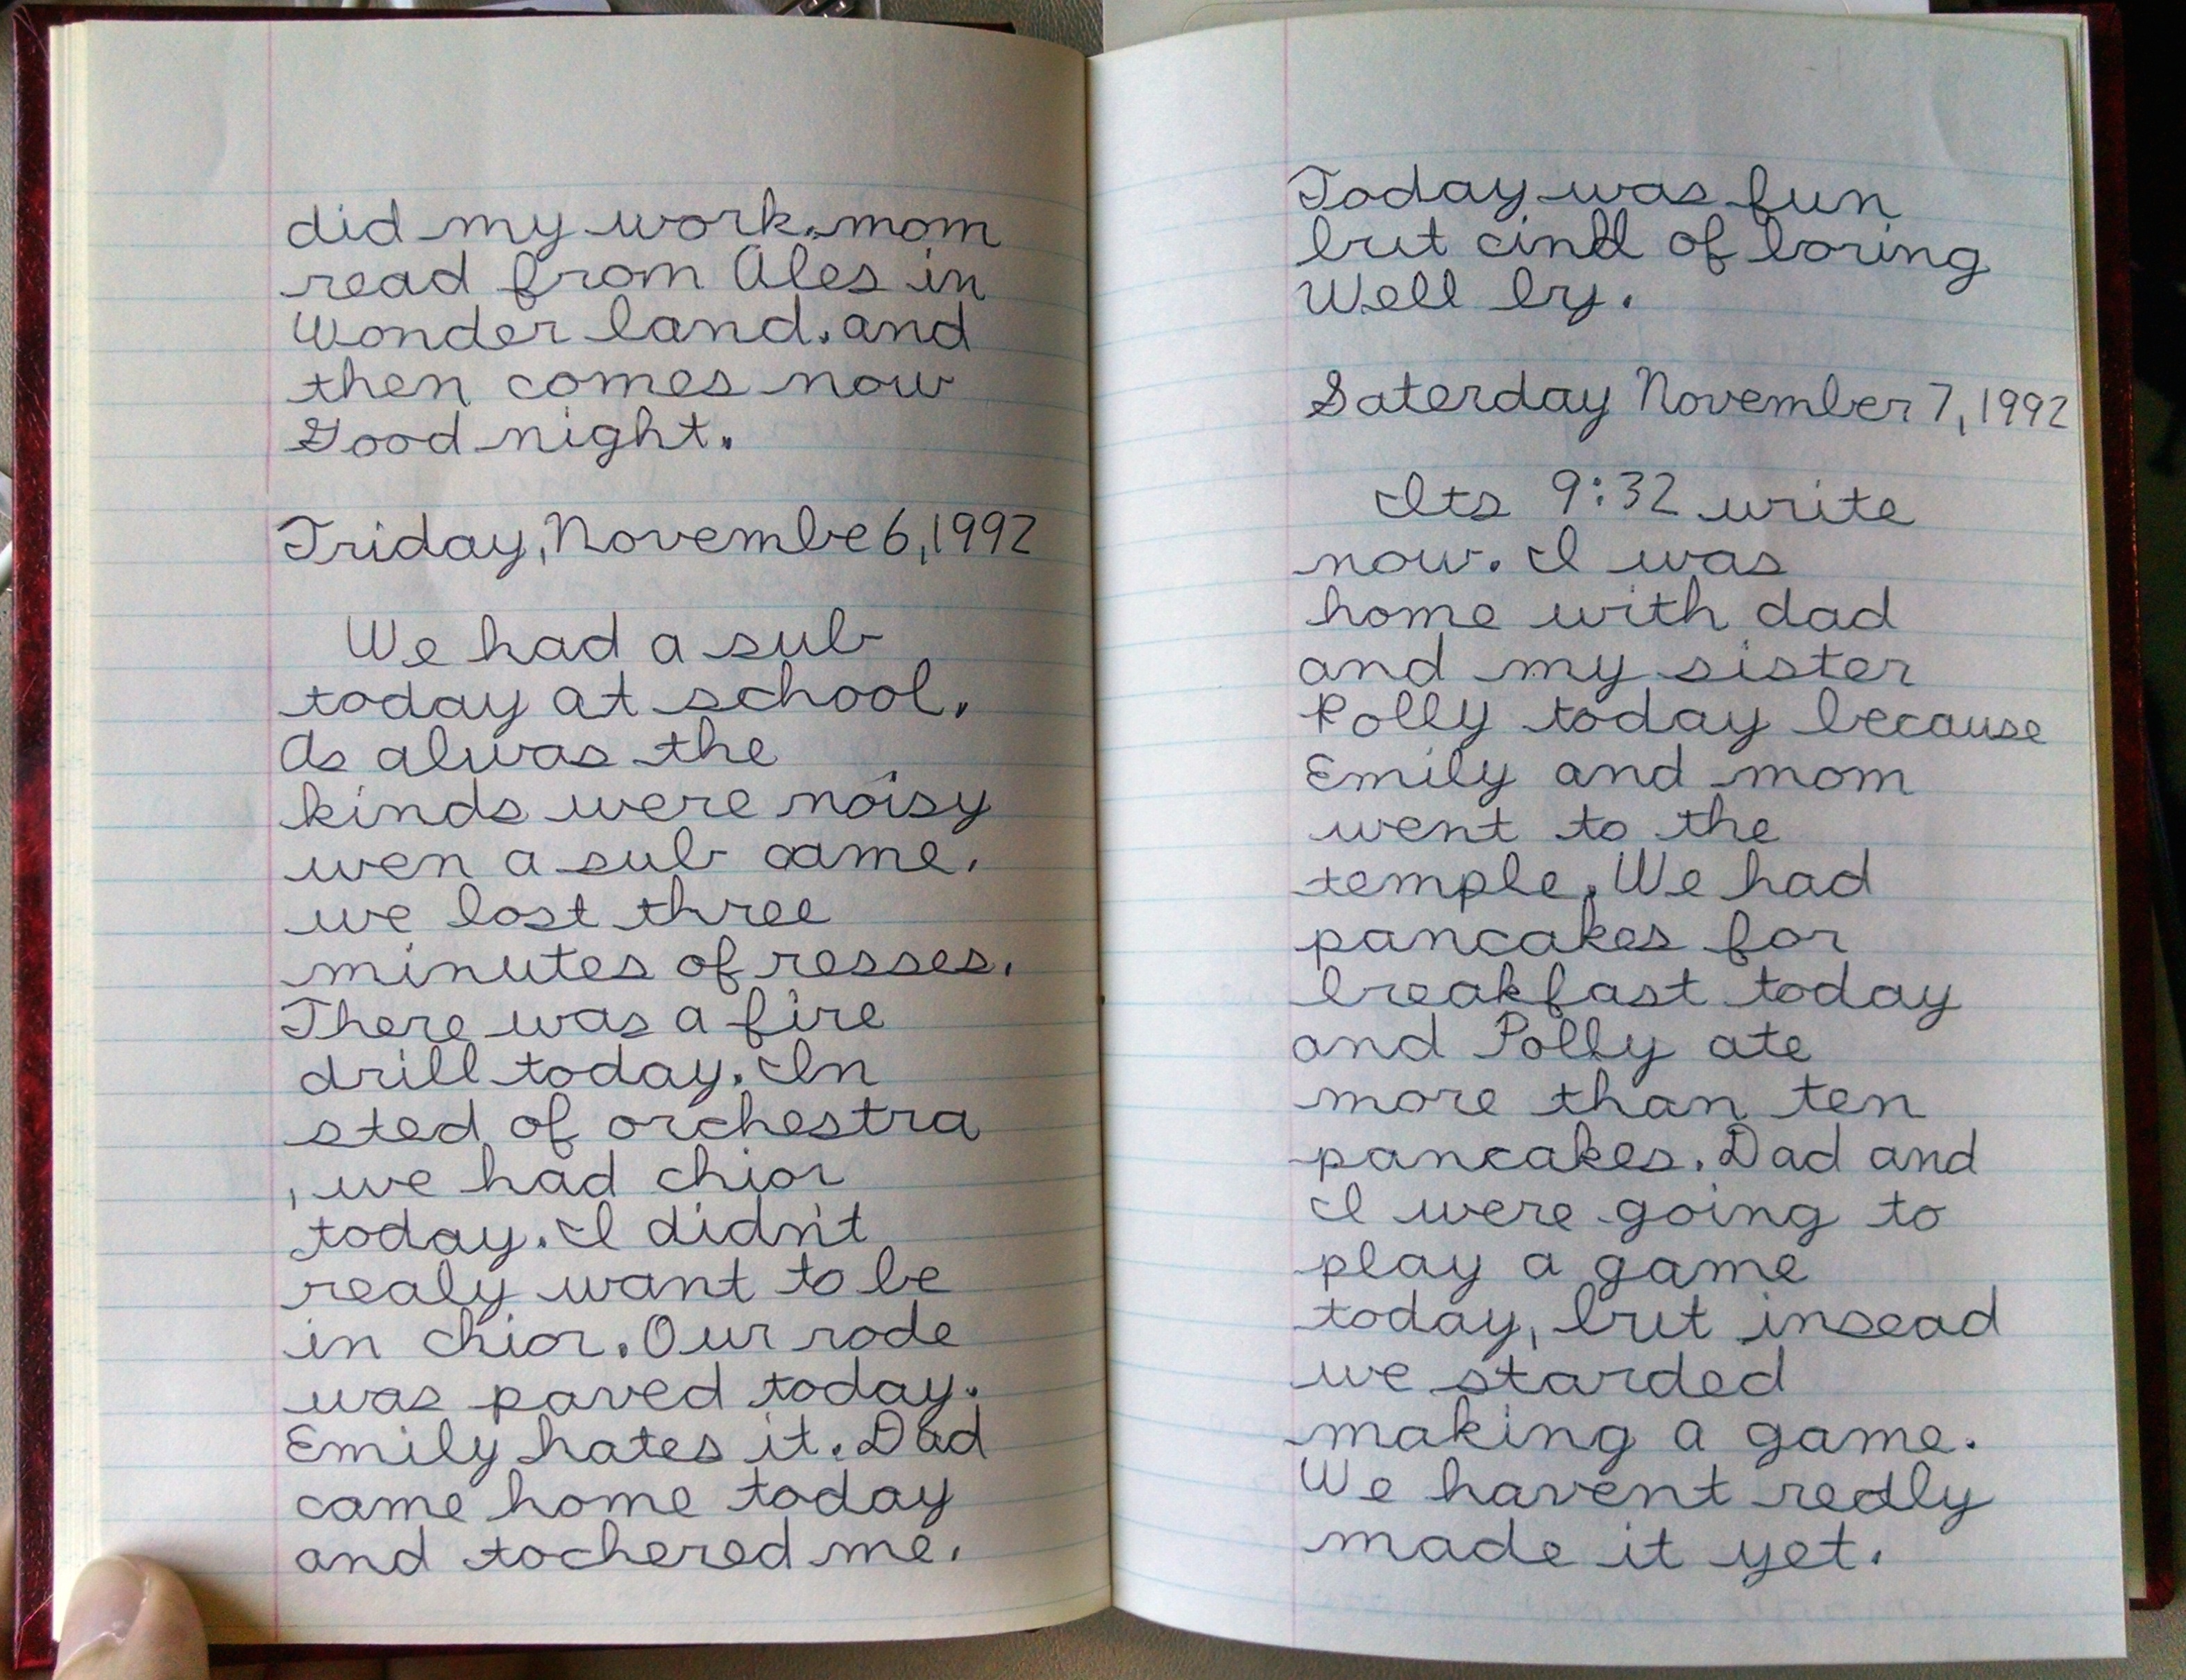 did my work. mom
read from Ales in
Wonder land. and
then comes now
Good night.
Friday, Novembe 6, 1992
We had a sub
today at school.
As alwas the
kinds were noisy
wen a sub came.
we lost three
minutes of resses.
There was a fire
drill today. In
sted of orchestra
, we had chior
today. I didn't
realy want to be
in chior. Our rode
was paved today.
Emily hates it. Dad
came home today
and tochered me.
Today was fun
but cind of boring
Well by.
Saterday November 7, 1992
Its 9:32 write
now. I was
home with dad
and my sister
Polly today because
Emily and mom
went to the
temple. We had
pancakes for
breakfast today
and Polly ate
more than ten
pancakes. Dad and
I were going to
play a game
today, but insead
we starded
making a game.
We havent redly
made it yet.